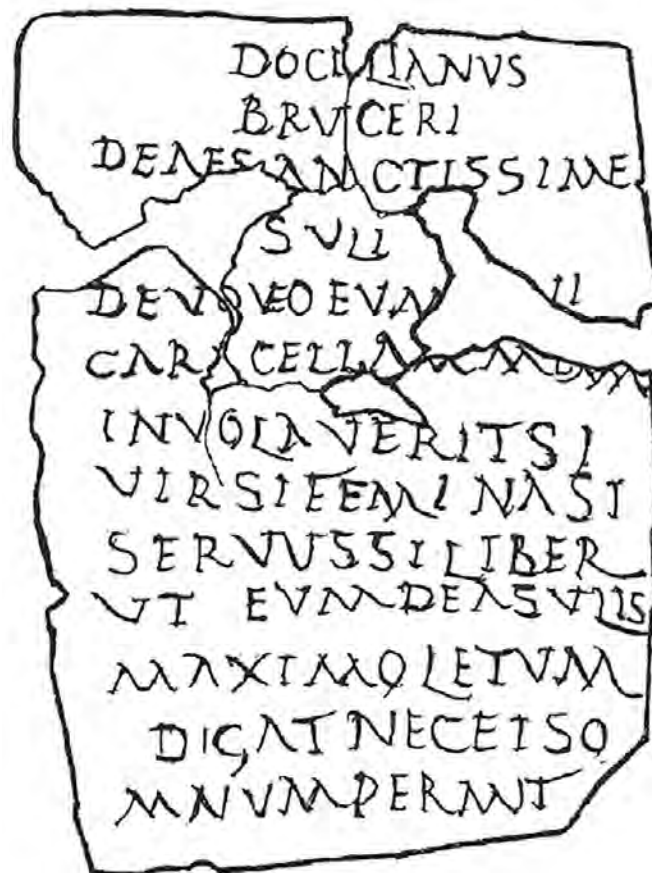 DOCILIANVS
BRVCERI
DEAESANCTISSIME
SVLI
DEVOVEO EVM
CARACELLAM
INVOLAVERITSI
VIRSIFEMINASI
SERVVSSILIBER
VT EVMDEASVLIS
MAXIMOLETVM
DIGATNECEISO
MNVMPERMIT